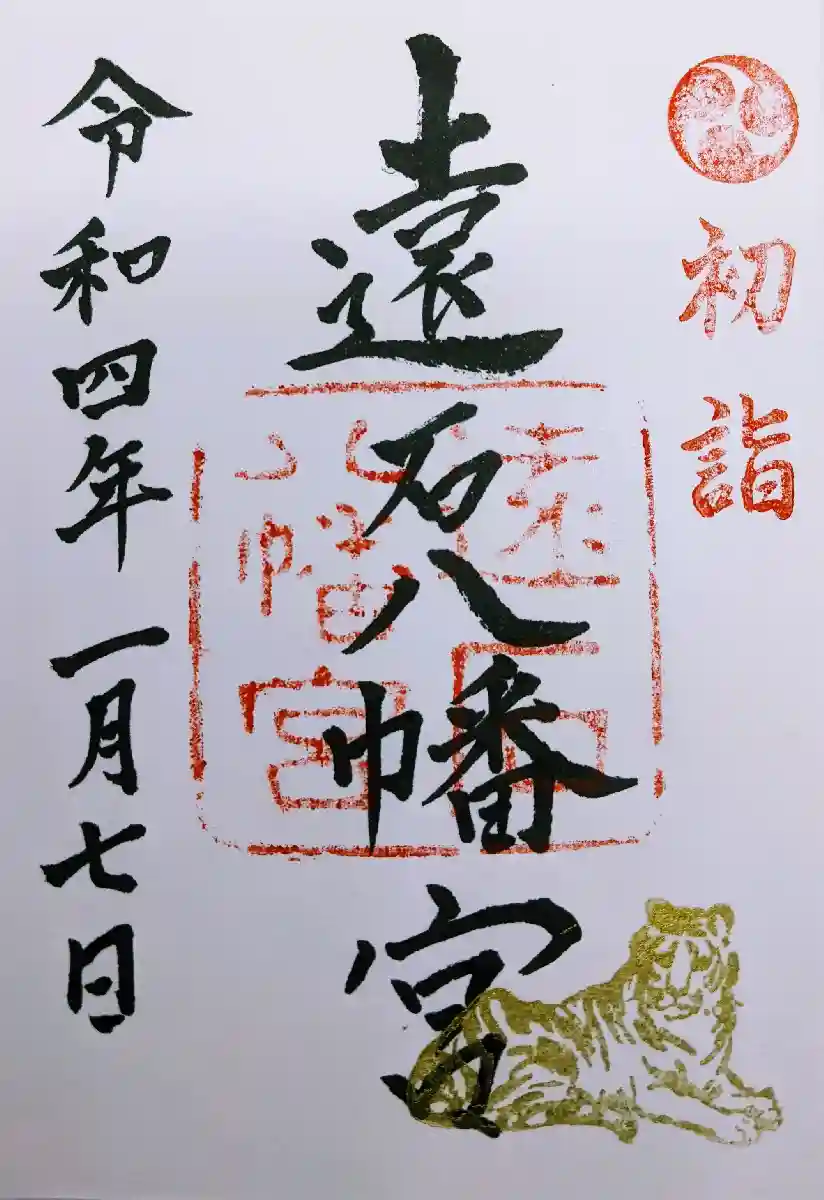 初詣
遠石八幡宮
遠石
八幡宮
令和四年 一月七日